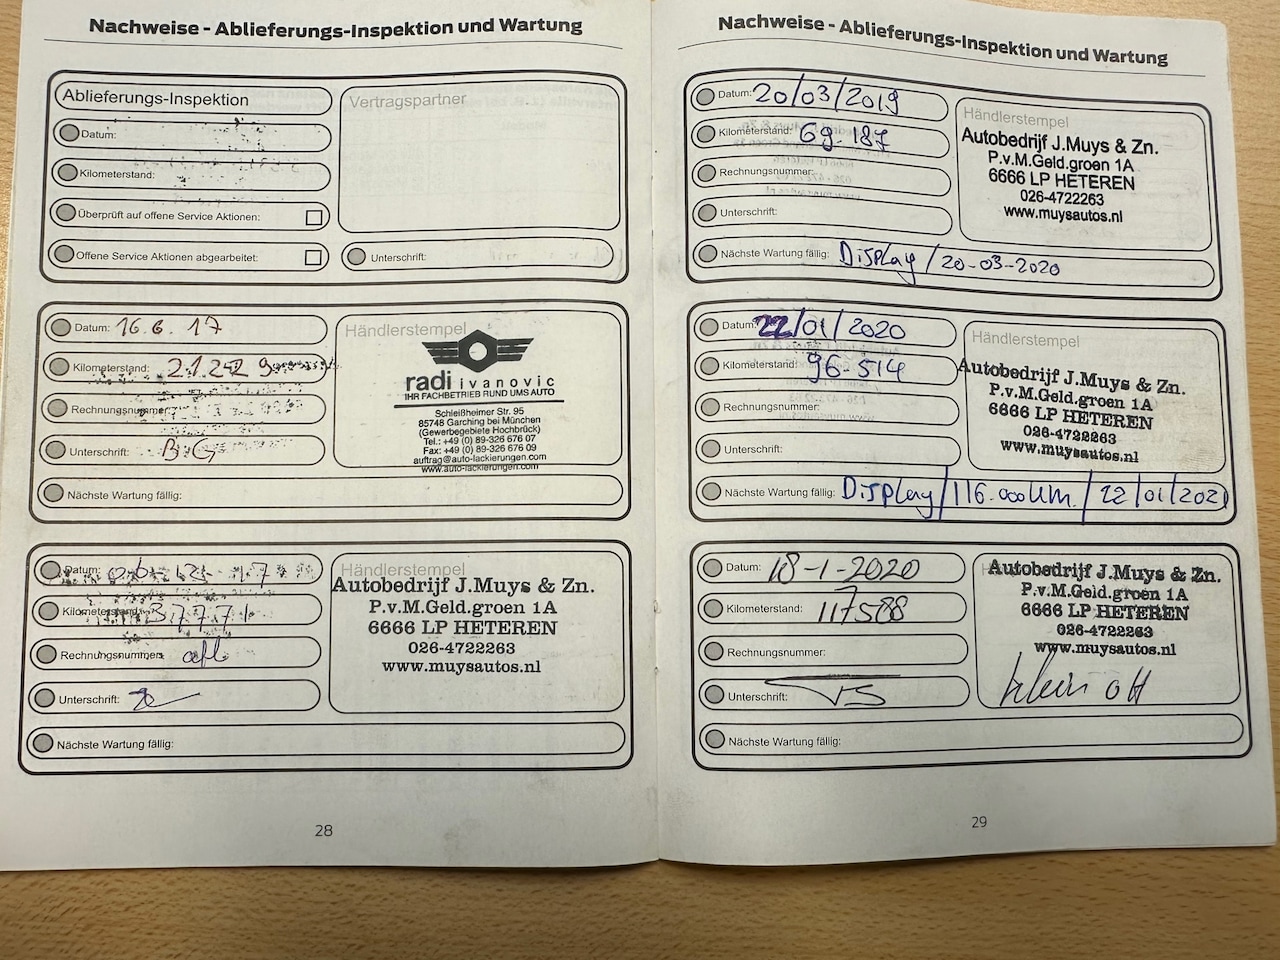 Nachweise - Ablieferungs-Inspektion und Wartung
Ablieferungs-Inspektion
Datum:
Kilometerstand:
Überprüft auf offene Service Aktionen:
Offene Service Aktionen abgearbeitet:
Vertragspartner
Unterschrift:
Datum: 16.6.17
Kilometerstand:
Rechnungsnummer:
Unterschrift:
Nächste Wartung fällig:
Händlerstempel
radi ivanovic
IHR FACHBETRIEB RUND UMS AUTO
Schleißheimer Str. 95
85748 Garching bei München
(Gewerbegebiete Hochbrück)
Tel.: +49 (0) 89-326 676 07
Fax: +49 (0) 89-326 676 09
auftrag@auto-lackierungen.com
www.auto-lackierungen.com
Datum:
Kilometerstand:
Rechnungsnummer:
Unterschrift:
Nächste Wartung fällig:
Händlerstempel
Autobedrijf J.Muys & Zn.
P.v.M.Geld.groen 1A
6666 LP HETEREN
026-4722263
www.muysautos.nl
28
Nachweise - Ablieferungs-Inspektion und Wartung
Datum: 20/03/2019
Kilometerstand: 69.187
Rechnungsnummer:
Unterschrift:
Nächste Wartung fällig: Display / 20-03-2020
Händlerstempel
Autobedrijf J.Muys & Zn.
P.v.M.Geld.groen 1A
6666 LP HETEREN
026-4722263
www.muysautos.nl
Datum: 22/01/2020
Kilometerstand: 96.514
Rechnungsnummer:
Unterschrift:
Nächste Wartung fällig: Display / 116.000 km / 22/01/2021
Händlerstempel
Autobedrijf J.Muys & Zn.
P.v.M.Geld.groen 1A
6666 LP HETEREN
026-4722263
www.muysautos.nl
Datum: 18-1-2020
Kilometerstand: 117588
Rechnungsnummer:
Unterschrift:
Nächste Wartung fällig:
Autobedrijf J.Muys & Zn.
P.v.M.Geld.groen 1A
6666 LP HETEREN
026-4722263
www.muysautos.nl
29